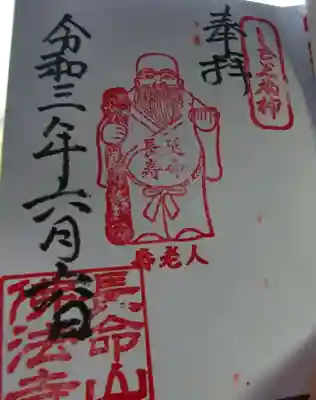 奉拝
延命
長寿
寿老人
令和三年六月六日
長命山
法寺